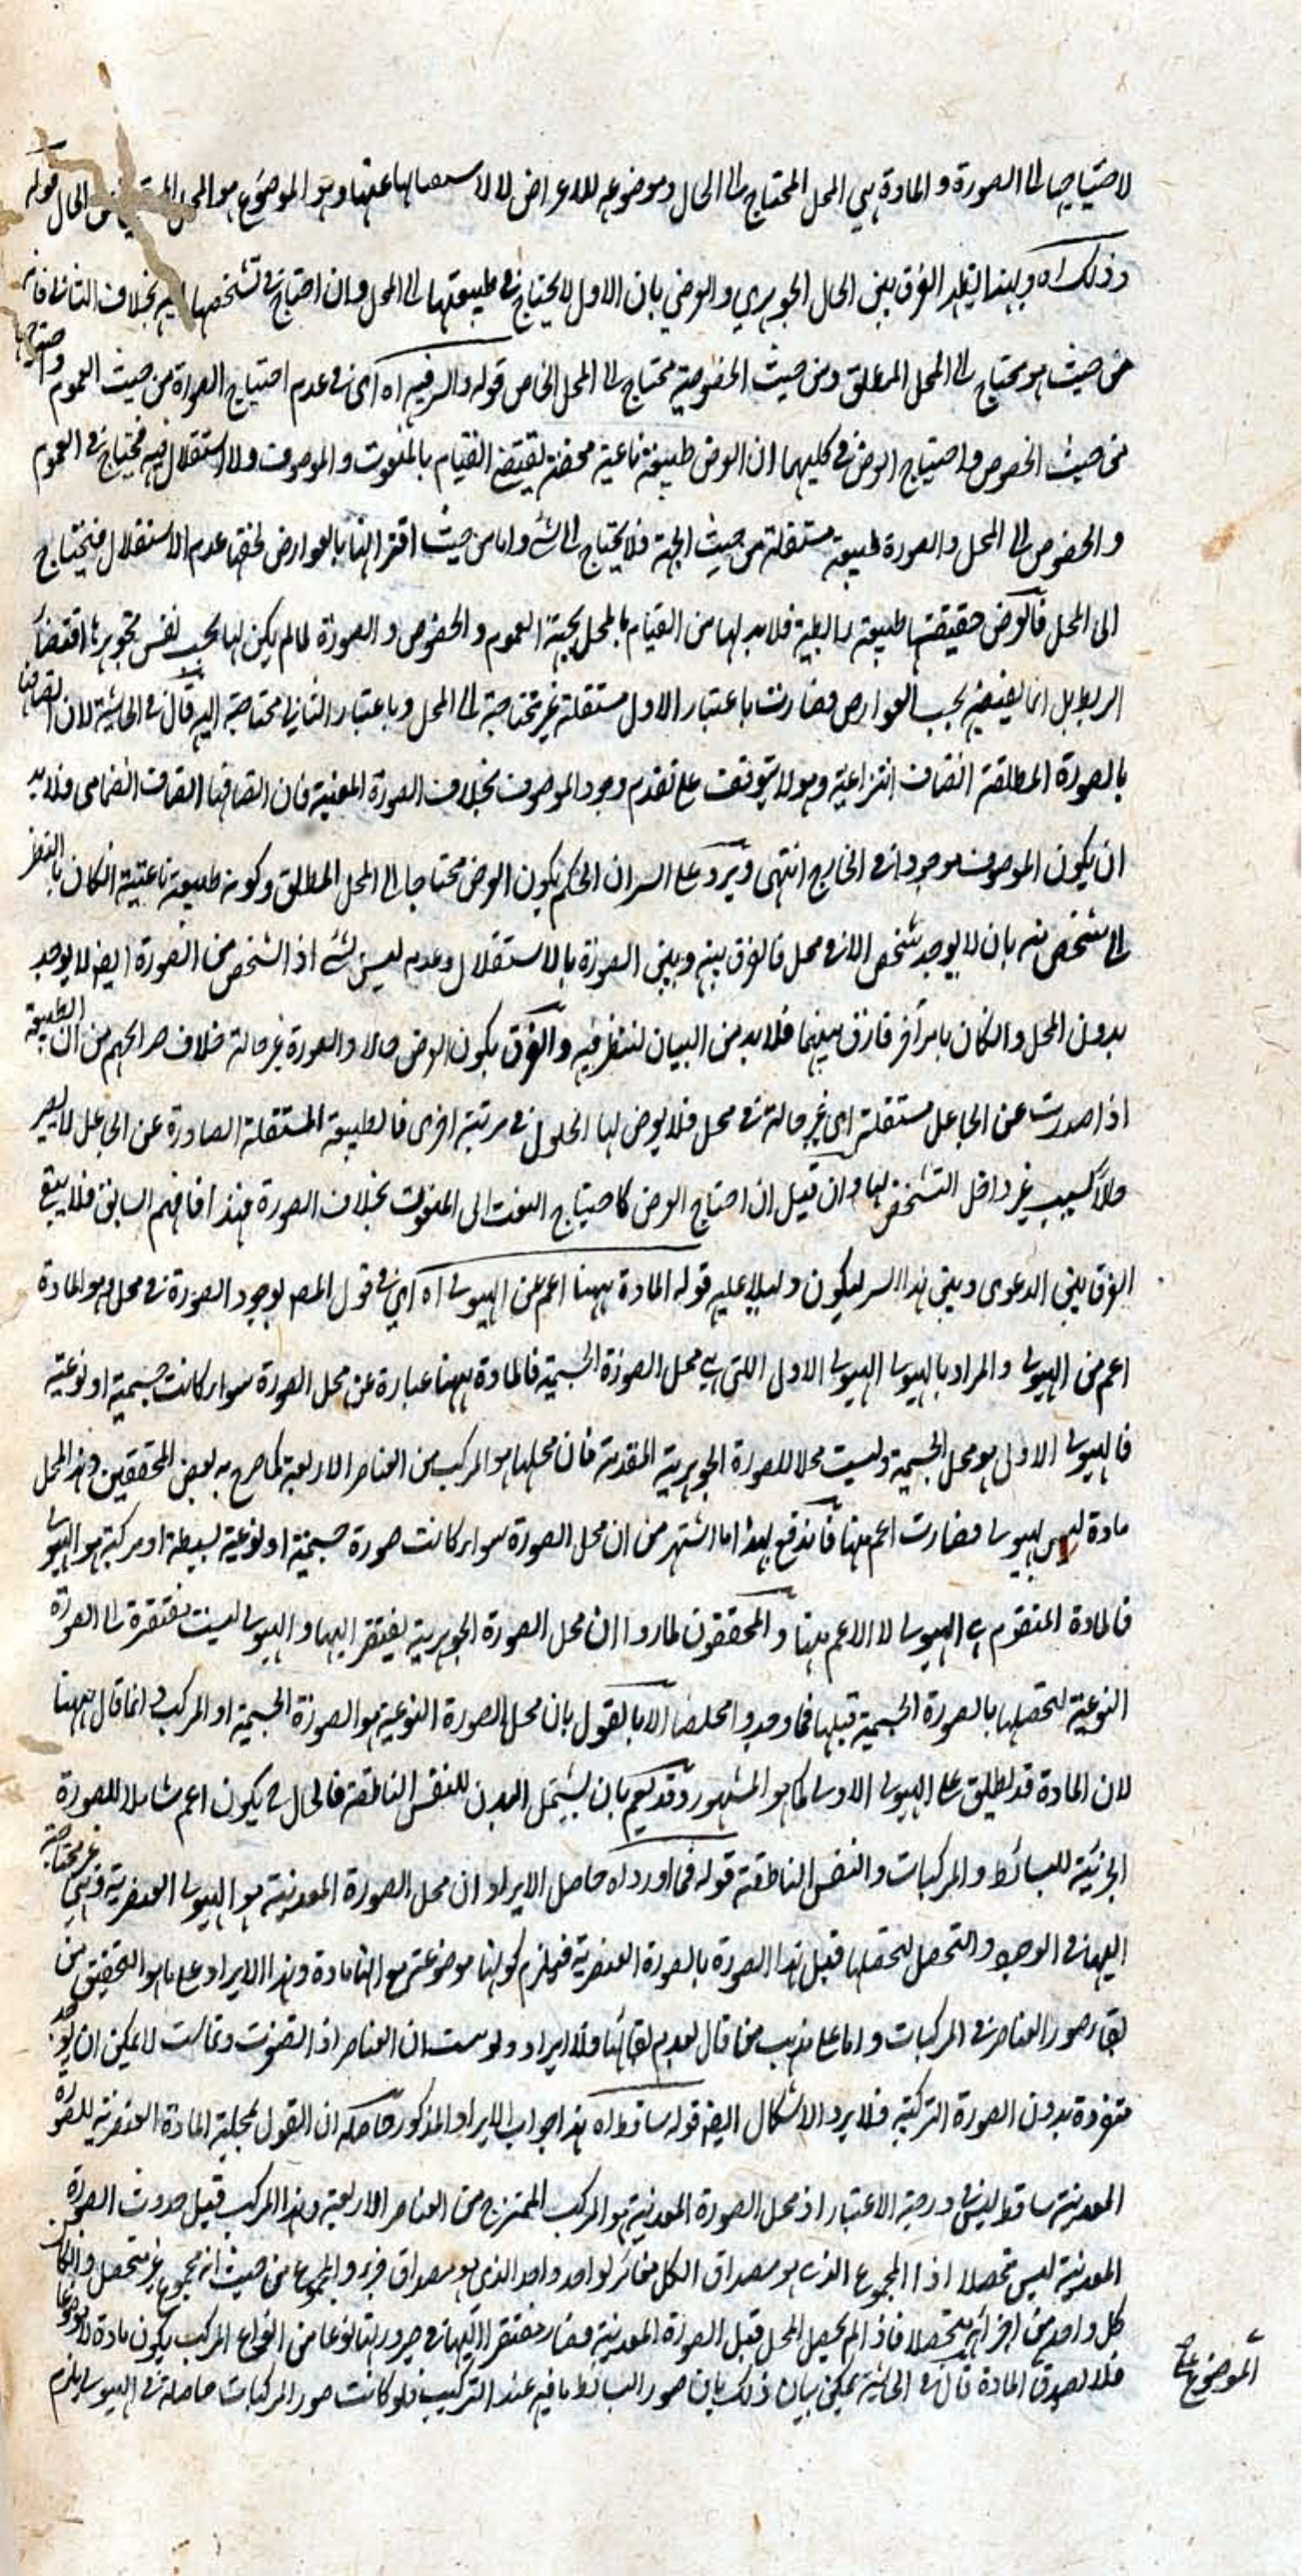 لاحتياجها الى الصورة و المادة هي المحل المحتاج الى الحال و موضوعه للاعراض لا لاستغنائها عنها و هو الموضوع هو المحل الحال قوله
و ذلك اه و بهذا يظهر الفرق بين الحال الجوهري و العرضي بان الاول لا يحتاج في طبيعتها الى المحل و ان احتاج في تشخصها اليه بخلاف الثاني فانه
من حيث هو يحتاج الى المحل المطلق و من حيث الخصوصية محتاج الى المحل الخاص قوله و السر فيه اه اى في عدم احتياج الصورة من حيث العموم و احتياجها
من حيث الخصوص و احتياج العرض في كليهما ان العرض طبيعة ناعتية محضة تقتضى القيام بالمنعوت و الموصوف و لا استقلال فيه فيحتاج في العموم
و الخصوص الى المحل و الصورة طبيعة مستقلة من حيث الجهة فلا يحتاج الى شئ و اما من حيث اقترانها بالعوارض لحقها عدم الاستقلال فيحتاج
الى المحل فالعرض حقيقتها طبيعة رابطية فلا بد لها من القيام بالمحل بجهة العموم و الخصوص و الصورة لما لم يكن لها بحسب نفس تجوهرها اقتضاء
الربط بل انما يقتضيه بحسب العوارض فصارت باعتبار الاول مستقلة غير محتاجة الى المحل و باعتبار الثاني محتاجة اليه قال في الحاشية لان اتصافها
بالصورة المطلقة اتصاف انتزاعية و هو لا يتوقف على تقدم وجود الموصوف بخلاف الصورة المعينة فان اتصافها اتصاف انضمامى فلا بد
ان يكون الموصوف موجودا في الخارج انتهى و يرد على السر ان الحكم بكون العرض محتاجا الى المحل المطلق و كونه طبيعة ناعتية ان كان بالنظر
الى شخص منه بان لا يوجد شخص الا في محل فالفرق بينه و بين الصورة بالاستقلال و عدمه ليس بشئ اذ الشخص من الصورة ايضا لا يوجد
بدون المحل و ان كان بامر آخر فارق بينهما فلا بد من البيان لننظر فيه و الفرق بكون العرض حالا و الصورة غير حالة خلاف صرائحهم من ان الطبيعة
اذا صدرت عن الجاعل مستقلة اى غير حالة في محل فلا يعرض لها الحلول في مرتبة اخرى فالطبيعة المستقلة الصادرة عن الجاعل لا يصير
حالا بسبب غير داخل التشخص لها و ان قيل ان احتياج العرض كاحتياج النعت الى المنعوت بخلاف الصورة فهذا فافهم السابق فلا يبقى
الفرق بين الدعوى و بين هذا السر ليكون دليلا عليه قوله المادة ههنا اعم من الهيولى اه اى في قول المصـ لوجود الصورة في محل و هو المادة
اعم من الهيولى و المراد بالهيولى الهيولى الاولى اللتى هي محل الصورة الجسمية فالمادة ههنا عبارة عن محل الصورة سواء كانت جسمية او نوعية
فالهيولى الاولى هو محل الجسمية و ليست محلا للصورة الجوهرية المعدنية فان محلها هو المركب من العناصر الاربعة كما صرح به بعض المحققين و هذا المحل
مادة ليس بهيولى فصارت اعم منها فاندفع بهذا ما اشتهر من ان محل الصورة سواء كانت صورة جسمية او نوعية بسيطة او مركبة هو الهيولى
فالمادة المتقوم هي الهيولى لا الاعم منها و المحققون لما رووا ان محل الصورة الجوهرية يفتقر اليها و الهيولى ليست مفتقرة الى الصورة
النوعية لتحصلها بالصورة الجسمية قبلها فما وجدوا مخلصا الا بالقول بان محل الصورة النوعية هو الصورة الجسمية او المركب و انما قال ههنا
لان المادة قد يطلق على الهيولى الاولى كما هو المشهور و قد يعم بان يشتمل البدن للنفس الناطقة فالحال ح يكون اعم شاملا للصورة
الجزئية للبسائط و المركبات و النفس الناطقة قوله فما اورد اه حاصل الايراد ان محل الصورة المعدنية هو الهيولى العنصرية و هي غير محتاجة
اليها في الوجود و التحصل لتحصلها قبل هذا الصورة بالصورة العنصرية فيلزم كونها موضوعة مع انها مادة و هذا الايراد على ما هو التحقيق من
بقاء صور العناصر في المركبات و اما على مذهب من قال بعدم بقائها فلا ايراد و لو سمت ان العناصر اذا تصغرت و تماست لا يمكن ان يوجد
متفردة بدون الصورة التركبية فلا يرد الاشكال ايضا قوله ساقط اه هذا جواب الايراد المذكور حاصله ان القول بمحلية المادة العنصرية للصورة
المعدنية ساقط ليس في درجة الاعتبار اذ محل الصورة المعدنية هو المركب الممتزج من العناصر الاربعة و هذا المركب قبل حدوث الصورة
المعدنية ليس متحصلا اذ المجموع الذى هو مصداق الكل مغائر لواحد واحد الذى هو مصداق فرد و المجموع من حيث انه مجموع غير متحصل و ان كان
كل واحد من اجزائه متحصلا فاذا لم يحصل المحل قبل الصورة المعدنية فصار مفتقرا اليها في صيرورتها نوعا من انواع المركب يكون مادة لا موضوعا
فلا يصدق المادة قال في الحاشية يمكن بيان ذلك بان صور البسائط باقية عند التركيب فلو كانت صور المركبات حاصلة في الهيولى يلزم
الموضوع على